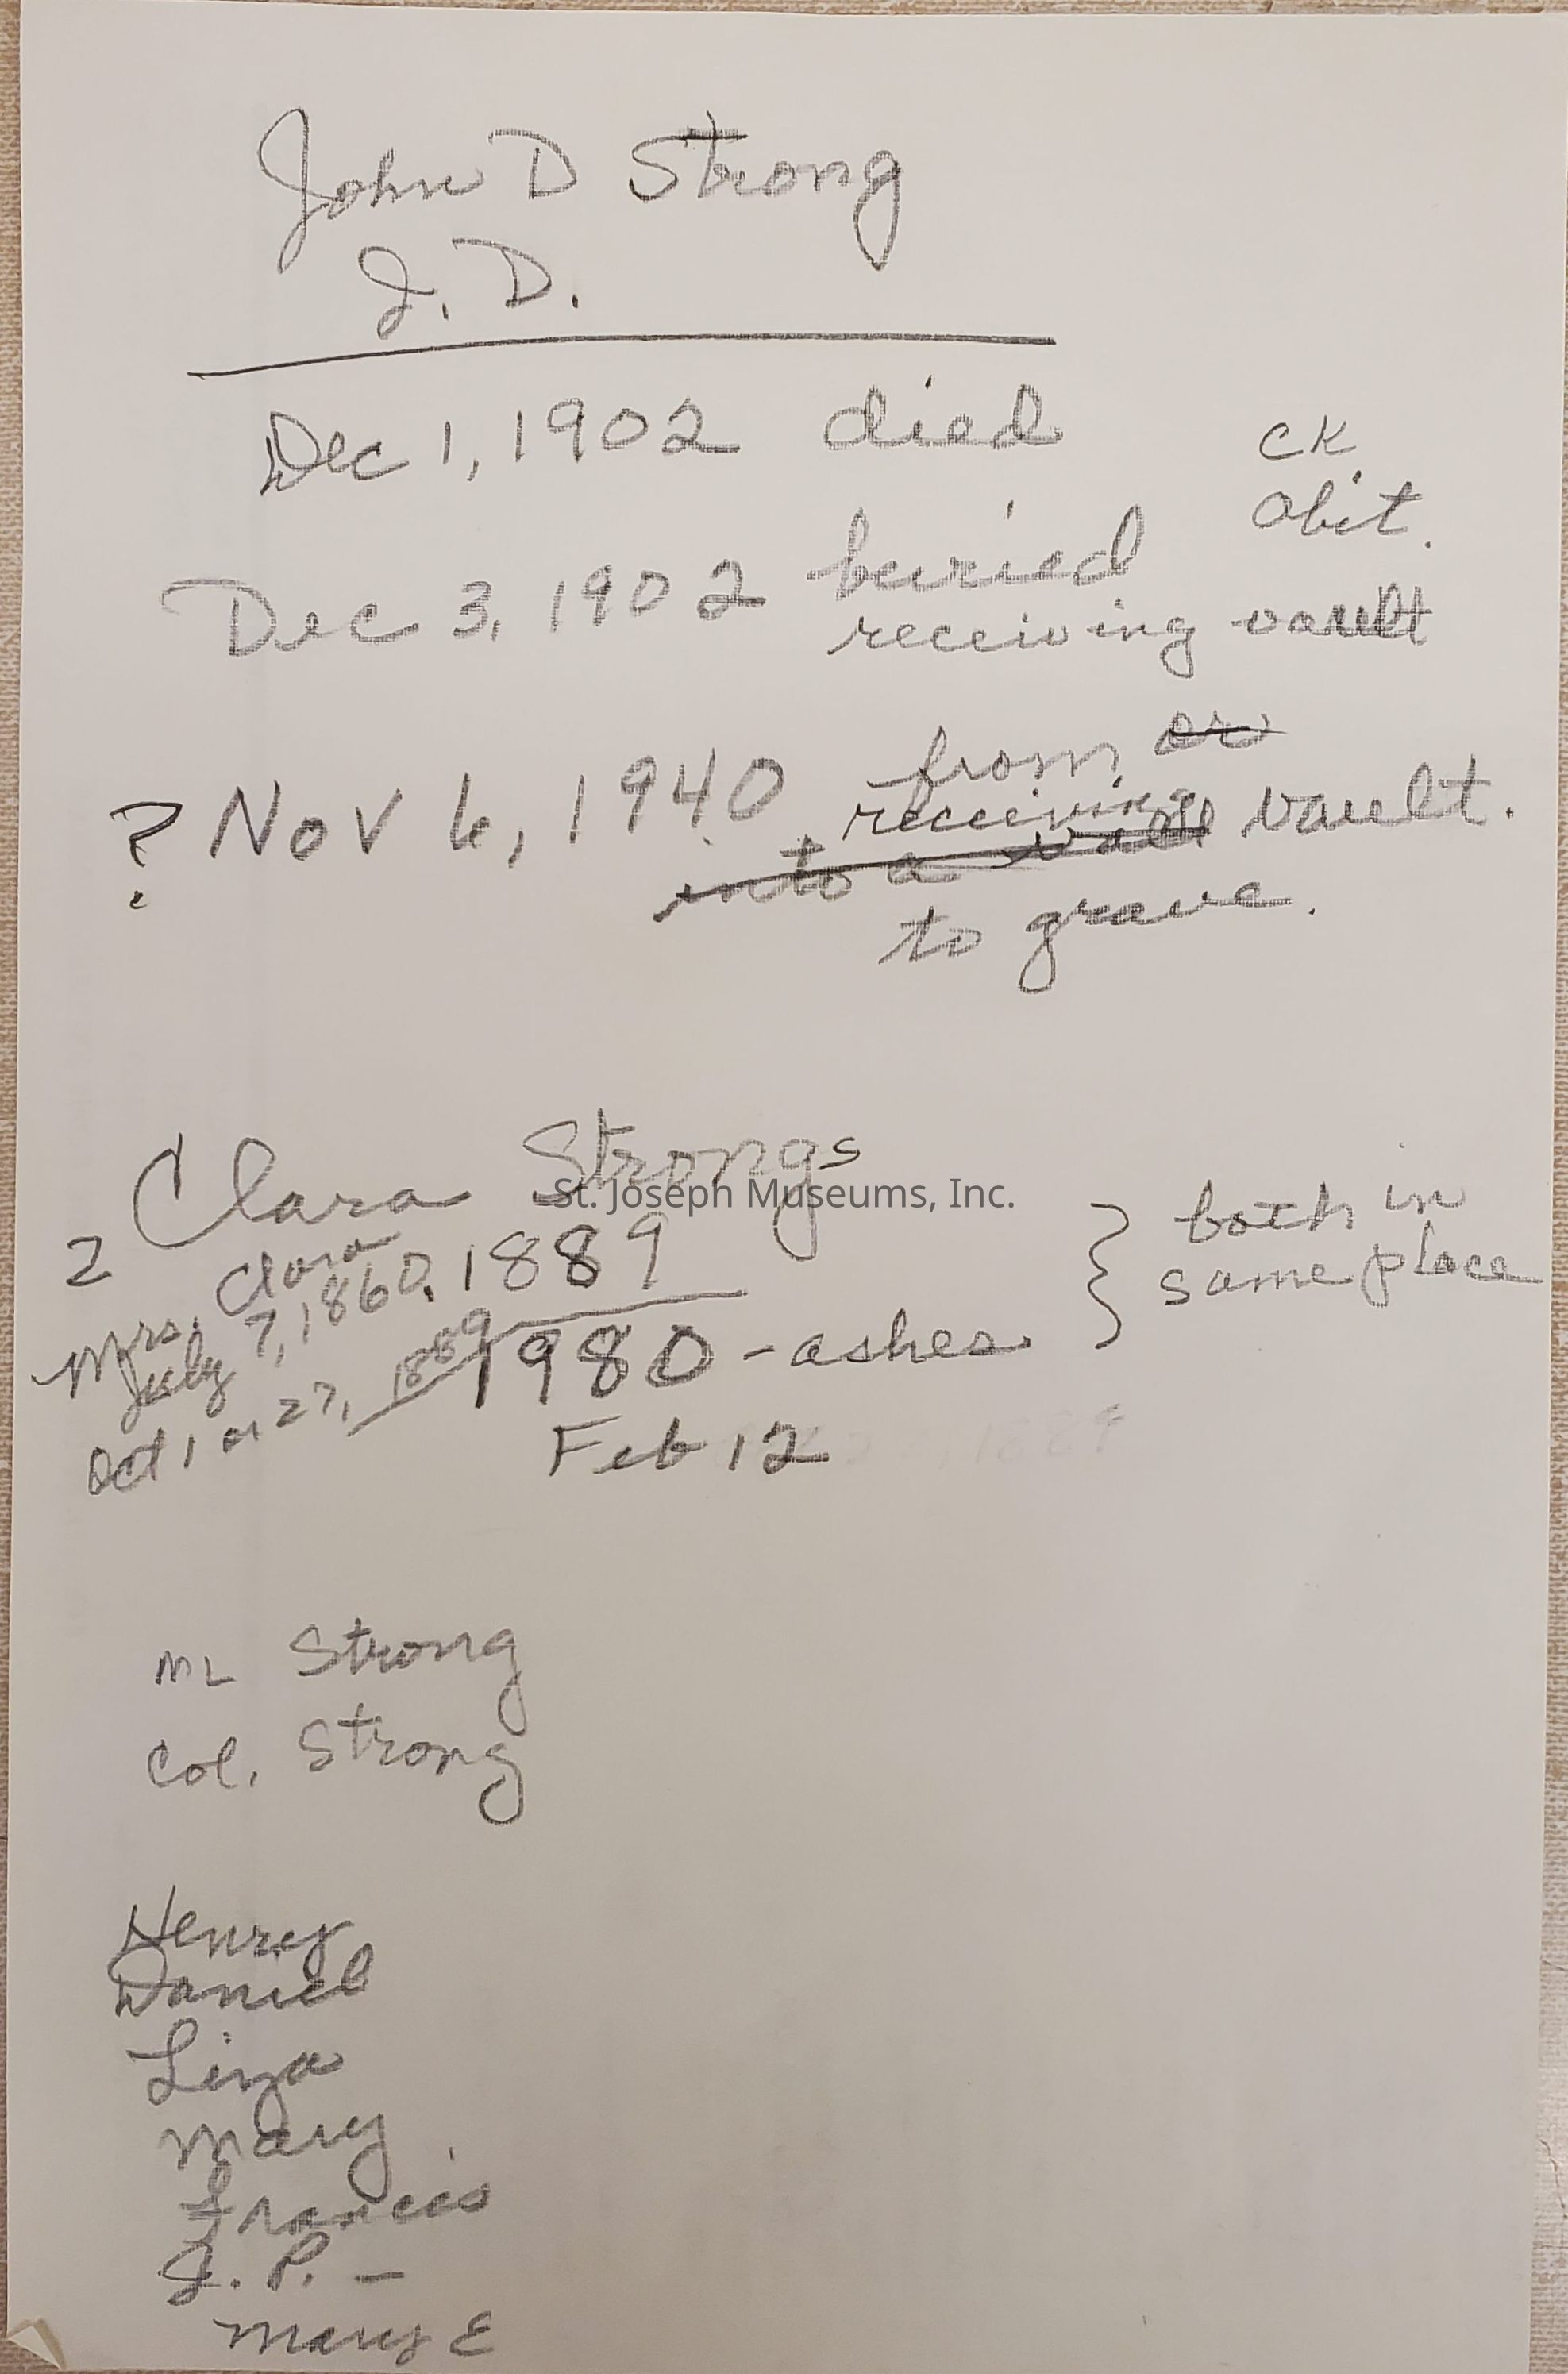 John D Strong
J. D.
Dec 1, 1902 died
ck
obit.
Dec 3, 1902 buried
receiving vault
? Nov 6, 1940 from or
receiving vault.
into a vault
to grave.
2 Clara Strongs
1889
1980 - ashes
Feb 12
both in
same place
Mrs. Clara
July 7, 1860
Oct 1 or 27, 1889
St. Joseph Museums, Inc.
ML Strong
Col. Strong
Henry
Daniel
Liza
Mary
Francis
J. P. -
Mary E